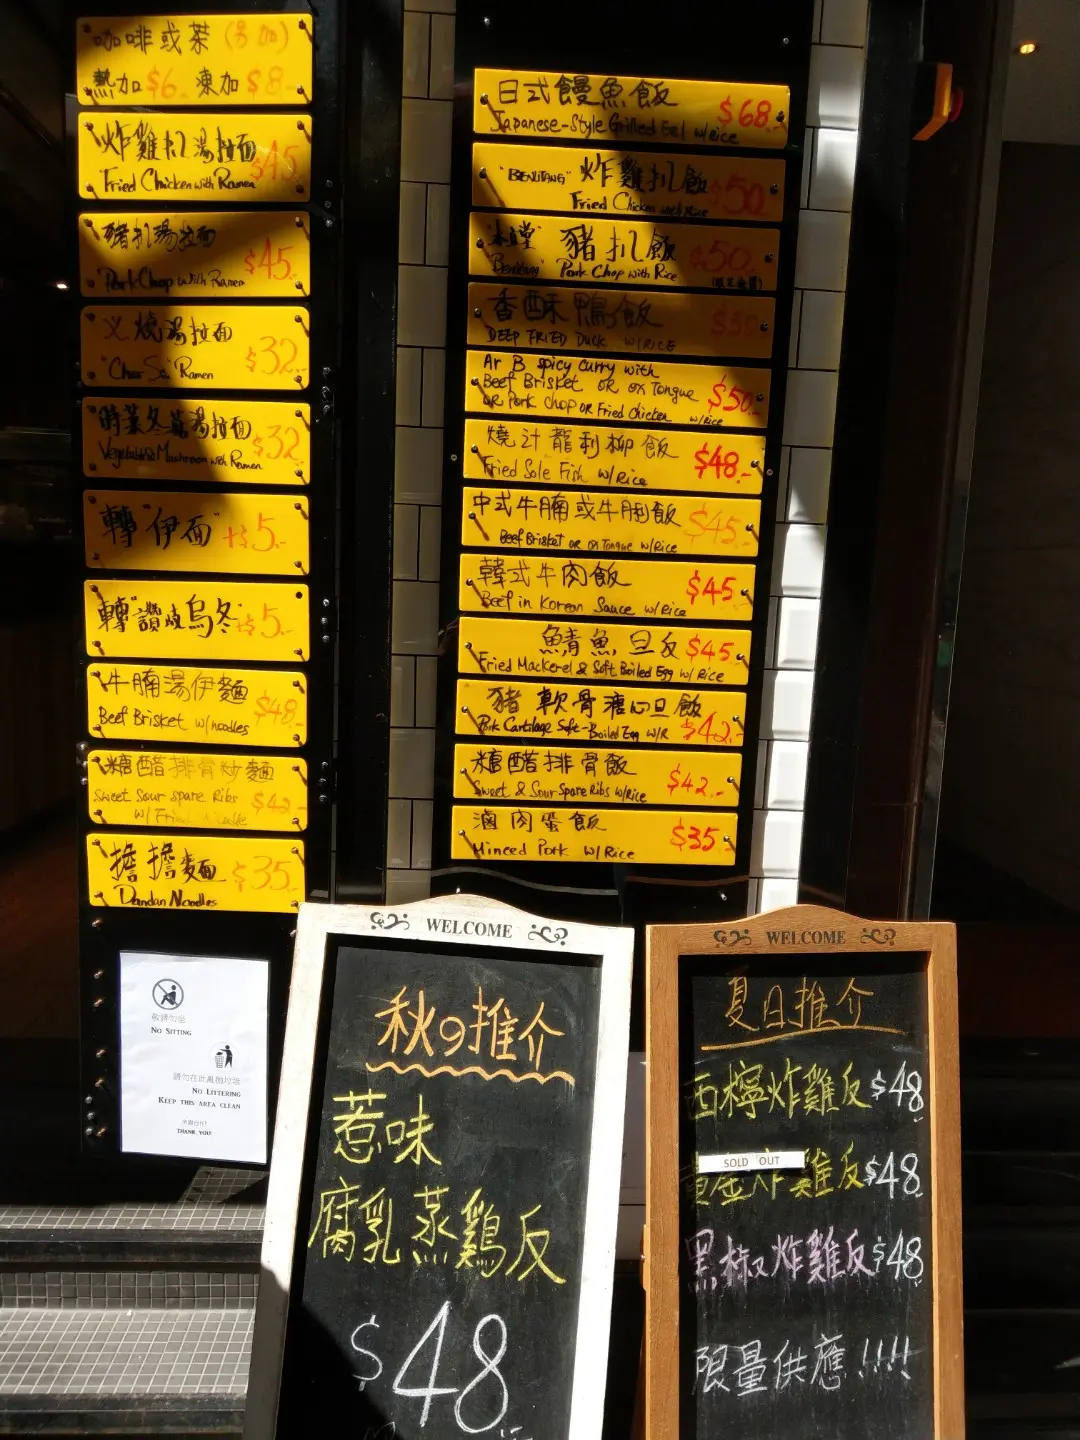 咖啡或茶 (另加)
熱加 $6 凍加 $8
炸雞扒湯拉面 $45
Fried Chicken with Ramen
豬扒湯拉面 $45.
Pork Chop with Ramen
叉燒湯拉面 $32.-
"Char Siu" Ramen
時菜冬菇湯拉面 $32
Vegetable & Mushroom with Ramen
轉"伊面" +$5.-
轉"讚岐烏冬" +$5.-
牛腩湯伊麵 $48.-
Beef Brisket w/noodles
糖醋排骨炒麵 $42.-
Sweet Sour Spare Ribs
w/ Fried Noodle
擔擔麵 $35.-
Dandan Noodles
敬請勿坐
NO SITTING
請勿在此亂拋垃圾
NO LITTERING
KEEP THIS AREA CLEAN
THANK YOU!
日式饅魚飯 $68.-
Japanese-Style Grilled Eel w/rice
炸雞扒飯 $50.-
Fried Chicken with Rice
豬扒飯 $50.-
Pork Chop with Rice
香酥鴨飯 $50
DEEP FRIED DUCK W/RICE
Ar B spicy curry with
Beef Brisket OR ox Tongue $50.-
OR Pork chop OR Fried Chicken w/rice
燒汁龍利柳飯 $48.-
Fried Sole Fish w/Rice
中式牛腩或牛脷飯 $45.-
Beef Brisket or ox Tongue w/Rice
韓式牛肉飯 $45.-
Beef in Korean Sauce w/Rice
鯖魚旦反 $45.-
Fried Mackerel & Soft Boiled Egg w/Rice
豬軟骨溏心旦飯 $42.-
Pork Cartilage Soft-Boiled Egg w/R
糖醋排骨飯 $42.-
Sweet & Sour Spare Ribs w/Rice
滷肉蛋飯 $35.-
Minced Pork w/Rice
WELCOME
秋の推介
惹味
腐乳蒸鷄反
$48
WELCOME
夏日推介
西檸炸雞反 $48
SOLD OUT
黃金炸雞反 $48
黑椒炸雞反 $48
限量供應!!!!